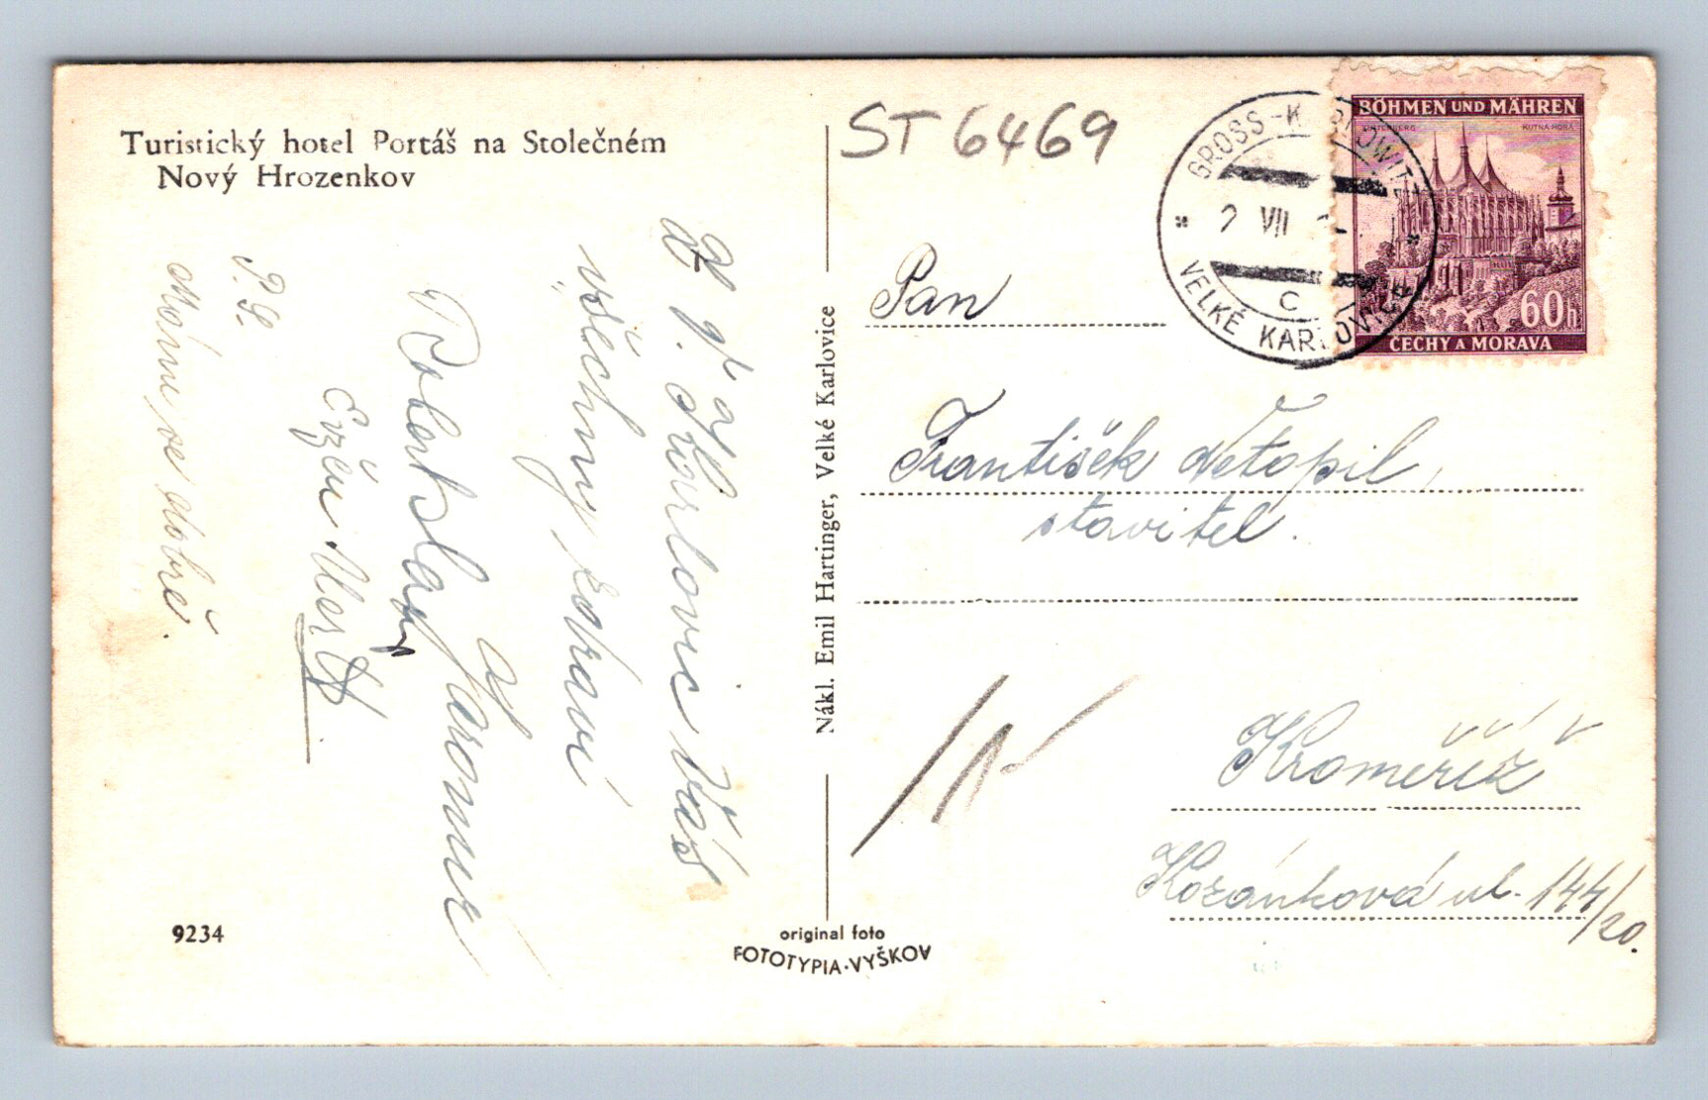 Turistický hotel Portáš na Stolečném
Nový Hrozenkov
Z V. Karlovic Vás
všechny zdraví
a Jaromír
Evžen
P.S.
Máme se dobře.
9234
Nákl. Emil Hartinger, Velké Karlovice
original foto
FOTOTYPIA-VYŠKOV
ST 6469
GROSS-KARLOWITZ
2 VII
C
VELKÉ KARLOVICE
BÖHMEN UND MÄHREN
KUTNÁ HORA
60h
ČECHY A MORAVA
Pan
František Netopil,
stavitel.
Kroměříž
Kozánková ul. 144/20.